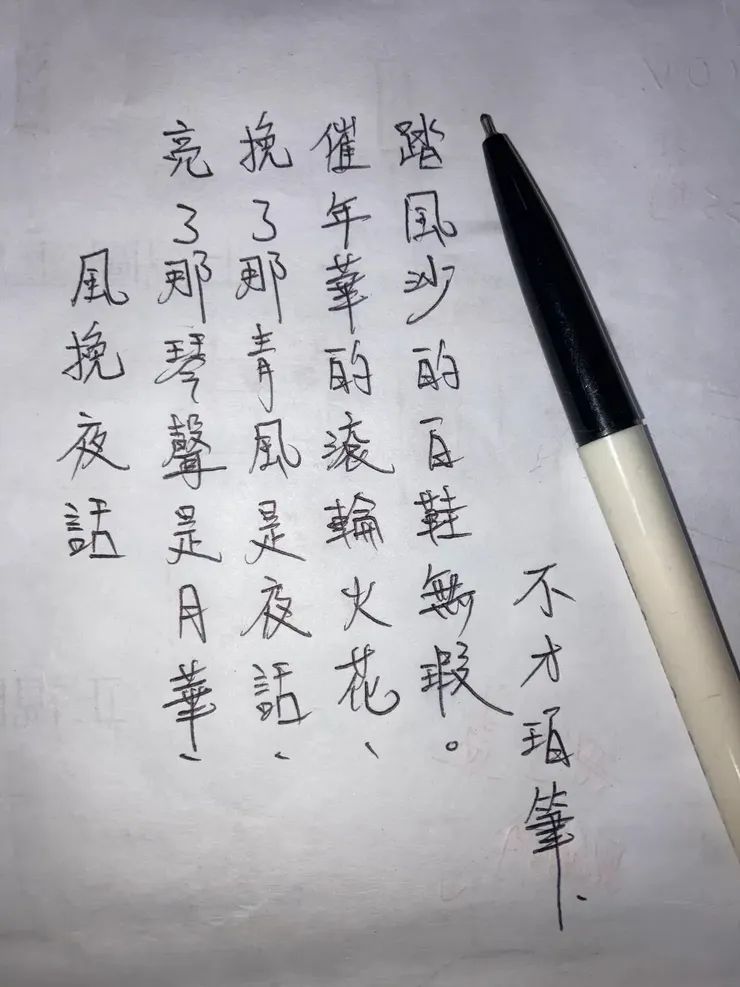 風挽夜話
亮了那琴聲是月華、
挽了那青風是夜話、
催年華的滾輪火花、
踏風沙的白鞋無瑕。
不才珀筆、